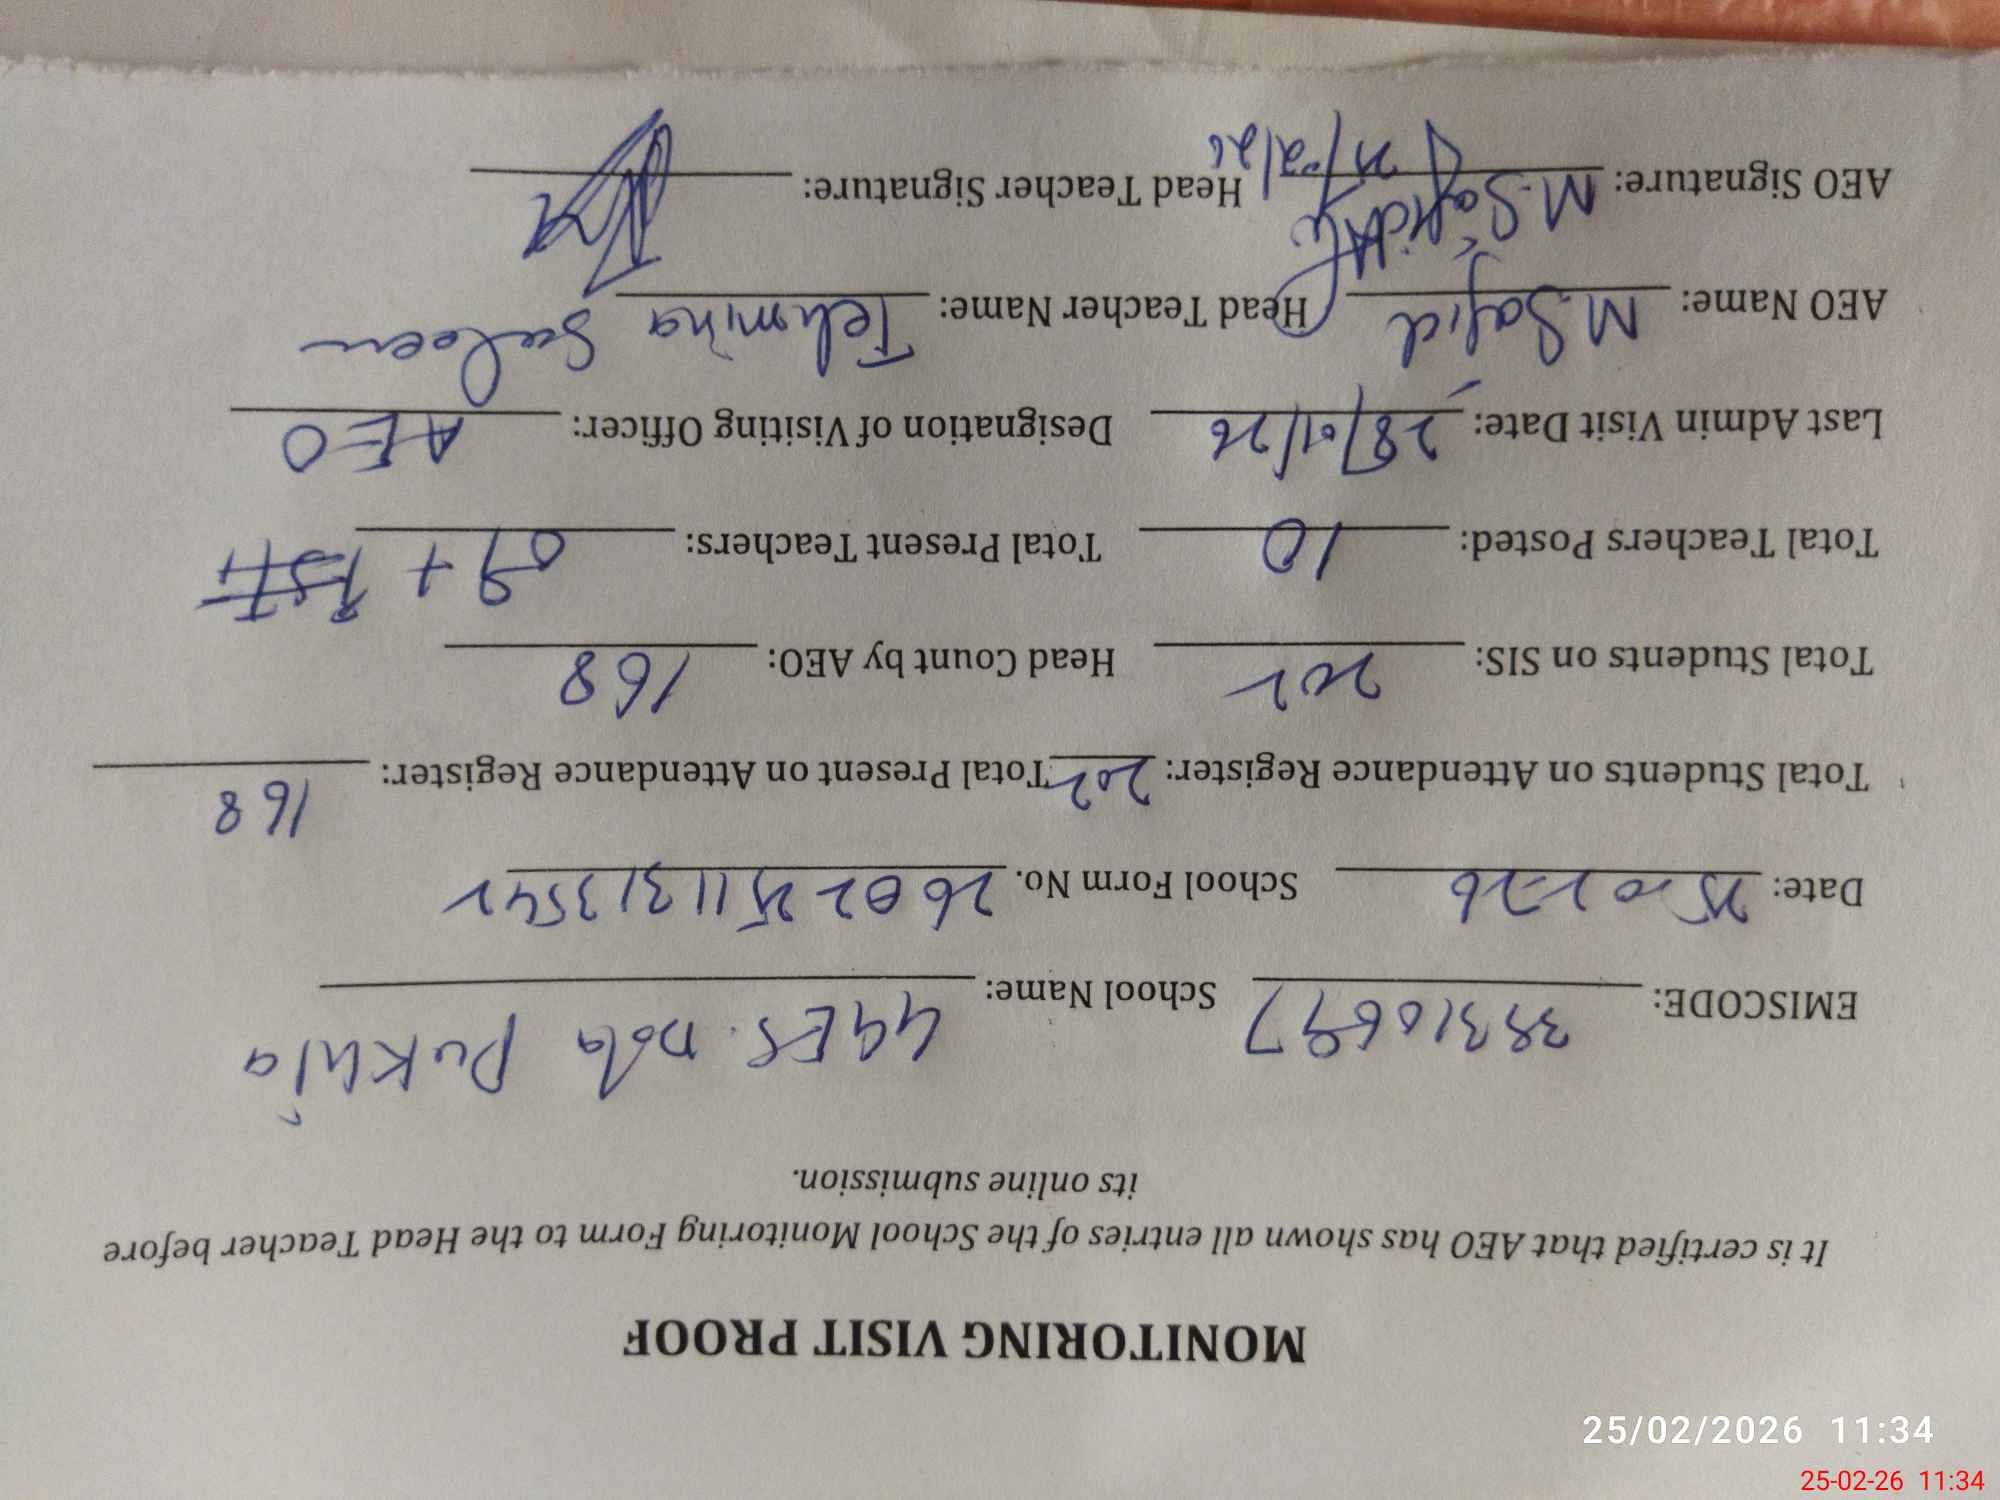 MONITORING VISIT PROOF
It is certified that AEO has shown all entries of the School Monitoring Form to the Head Teacher before
its online submission.
EMISCODE: 38310697 School Name: GGES. Dola Pukhia
Date: 25-02-26 School Form No. 26022511313542
Total Students on Attendance Register: 202 Total Present on Attendance Register: 168
Total Students on SIS: 202 Head Count by AEO: 168
Total Teachers Posted: 10 Total Present Teachers: 09 +
Last Admin Visit Date: 28/01/26 Designation of Visiting Officer: AEO
AEO Name: M. Sajid Head Teacher Name: Tehmina Saleem
AEO Signature: M. Sajid Head Teacher Signature:
25/02/2026 11:34
25-02-26 11:34